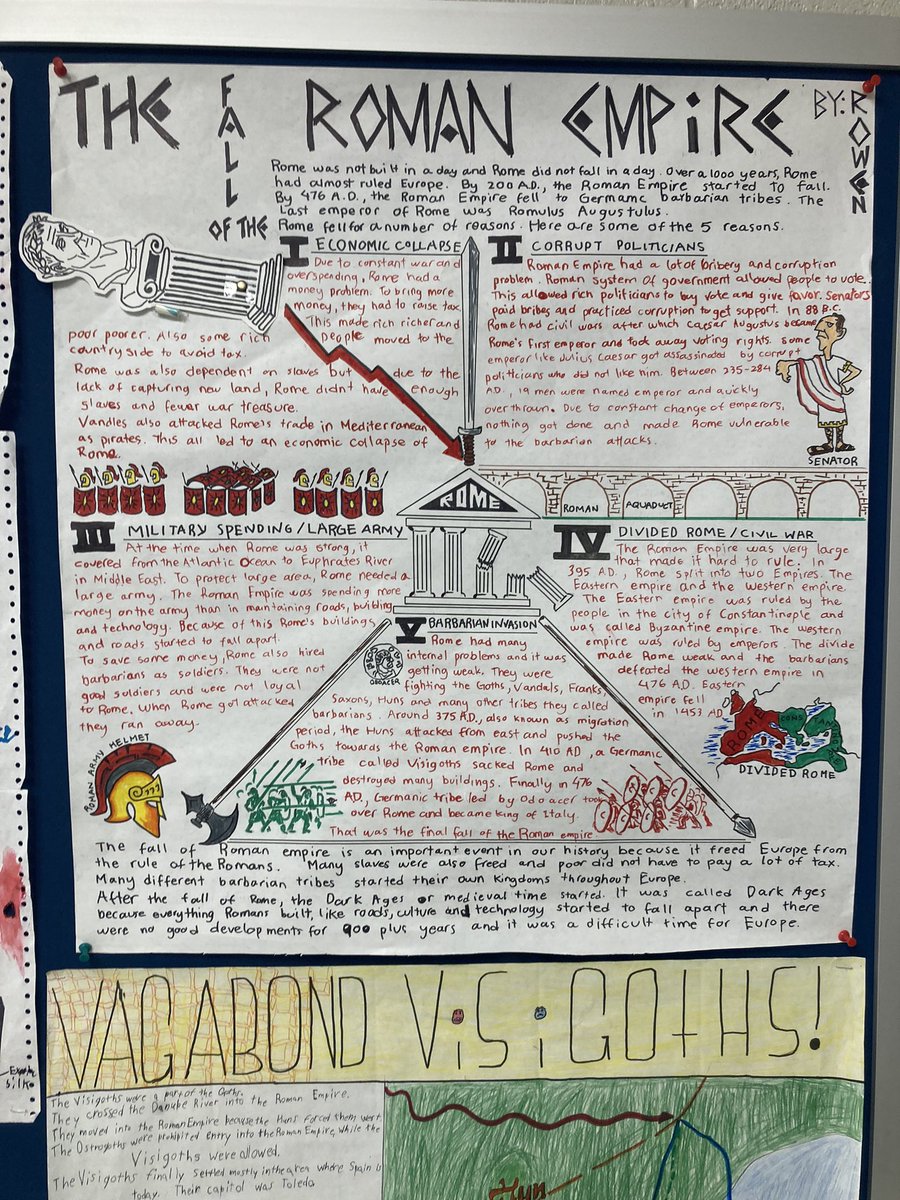 THE FALL OF THE ROMAN EMPIRE
BY: ROWEN
Rome was not built in a day and Rome did not fall in a day. Over a 1000 years, Rome
had almost ruled Europe. By 200 A.D., the Roman Empire started to fall.
By 476 A.D., the Roman Empire fell to Germanic barbarian tribes. The
last emperor of Rome was Romulus Augustulus.
Rome fell for a number of reasons. Here are some of the 5 reasons.
I ECONOMIC COLLAPSE
Due to constant war and
overspending, Rome had a
money problem. To bring more
money, they had to raise tax.
This made rich richer and
poor poorer. Also some rich people moved to the
country side to avoid tax.
Rome was also dependent on slaves but due to the
lack of capturing new land, Rome didn't have enough
slaves and fewer war treasure.
Vandles also attacked Rome's trade in Mediterranean
as pirates. This all led to an economic collapse of
Rome.
II CORRUPT POLITICIANS
Roman Empire had a lot of bribery and corruption
problem. Roman system of government allowed people to vote.
This allowed rich politicians to buy vote and give favor. Senators
paid bribes and practiced corruption to get support. In 88 B.C.
Rome had civil wars after which Caesar Augustus became
Rome's first emperor and took away voting rights. Some
emperor like Julius Caesar got assassinated by corrupt
politicians who did not like him. Between 235-284
A.D., 19 men were named emperor and quickly
overthrown. Due to constant change of emperors,
nothing got done and made Rome vulnerable
to the barbarian attacks.
SENATOR
ROME
ROMAN AQUADUCT
III MILITARY SPENDING/LARGE ARMY
At the time when Rome was strong, it
covered from the Atlantic Ocean to Euphrates River
in Middle East. To protect large area, Rome needed a
large army. The Roman Empire was spending more
money on the army than in maintaining roads, building
and technology. Because of this Rome's buildings
and roads started to fall apart.
To save some money, Rome also hired
barbarians as soldiers. They were not
good soldiers and were not loyal
to Rome. When Rome got attacked
they ran away.
ROMAN ARMY HELMET
IV DIVIDED ROME/CIVIL WAR
The Roman Empire was very large
that made it hard to rule. In
395 A.D., Rome split into two Empires. The
Eastern empire and the western empire.
The Eastern empire was ruled by the
people in the city of Constantinople and
was called Byzantine empire. The western
empire was ruled by emperors. The divide
made Rome weak and the barbarians
defeated the western empire in
476 A.D. Eastern
empire fell
in 1453 AD
ROME
CONSTAN
DIVIDED ROME
V BARBARIAN INVASION
ODOACER
Rome had many
internal problems and it was
getting weak. They were
fighting the Goths, Vandals, Franks,
Saxons, Huns and many other tribes they called
barbarians. Around 375 A.D., also known as migration
period, the Huns attacked from east and pushed the
Goths towards the Roman empire. In 410 AD, a Germanic
tribe called Visigoths sacked Rome and
destroyed many buildings. Finally in 476
AD., Germanic tribe led by Odoacer took
over Rome and became king of Italy.
That was the final fall of the Roman empire.
The fall of Roman empire is an important event in our history because it freed Europe from
the rule of the Romans. Many slaves were also freed and poor did not have to pay a lot of tax.
Many different barbarian tribes started their own kingdoms throughout Europe.
After the fall of Rome, the Dark Ages or medieval time started. It was called Dark Ages
because everything Romans built, like roads, culture and technology started to fall apart and there
were no good developments for 900 plus years and it was a difficult time for Europe.
VAGABOND ViSiGOTHS!
The Visigoths were a part of the Goths.
They crossed the Danube River into the Roman Empire.
They moved into the Roman Empire because the Huns forced them west.
The Ostrogoths were prohibited entry into the Roman Empire, while the
Visigoths were allowed.
The Visigoths finally settled mostly in the area where Spain is
today. Their capitol was Toledo
Hun
silk